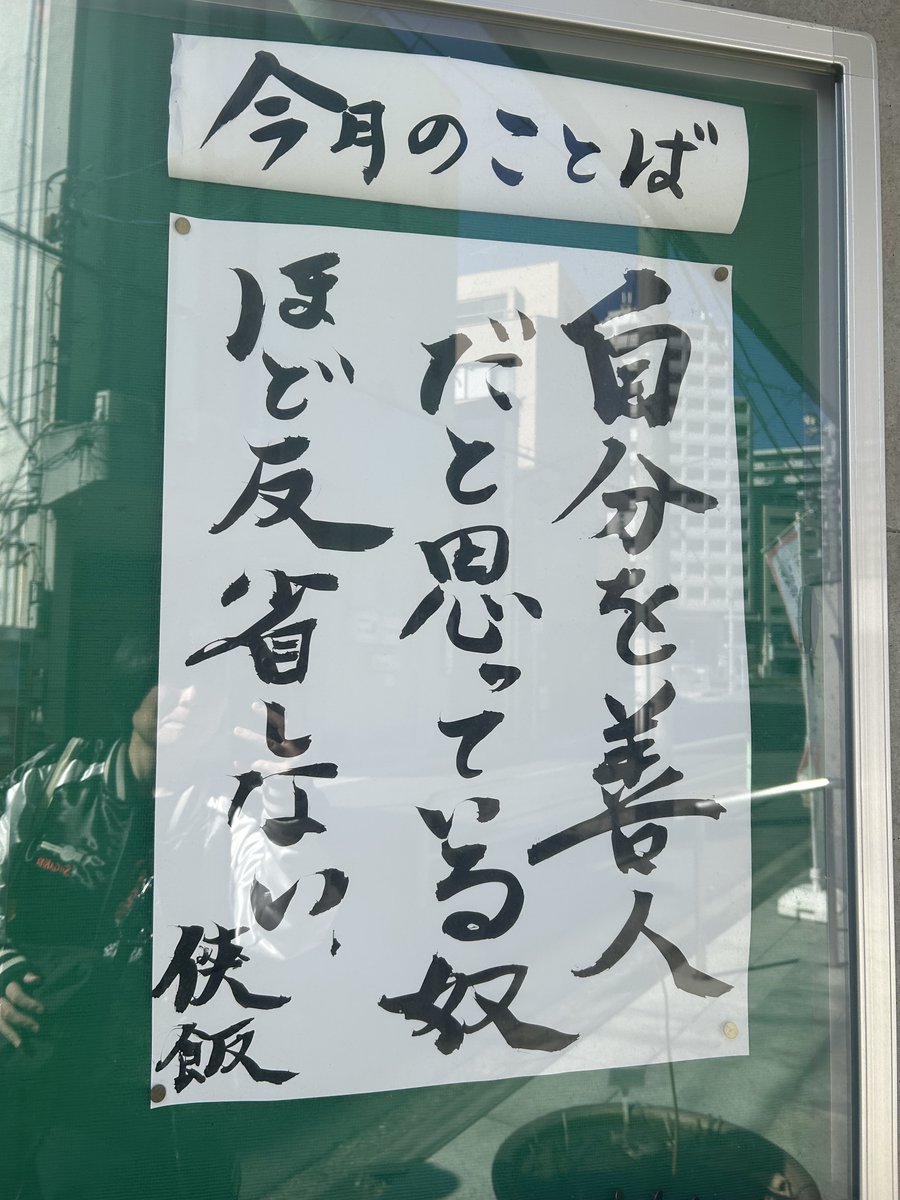 今月のことば
自分を善人
だと思っている奴
ほど反省しない。
侠飯